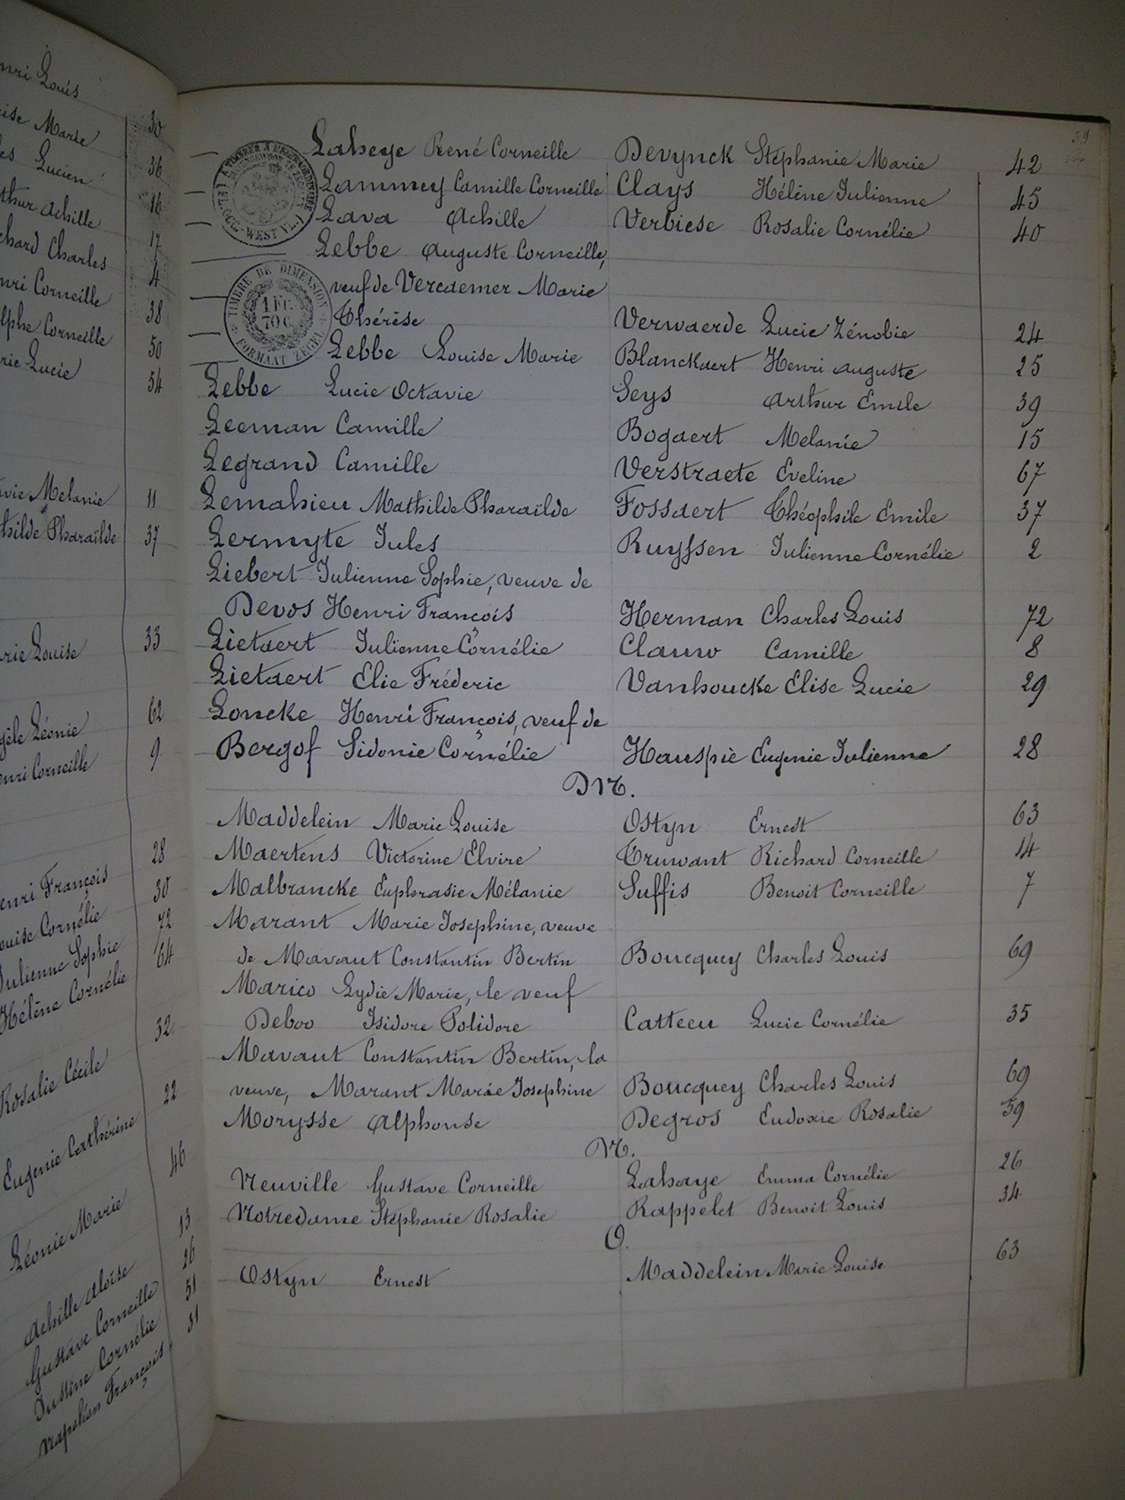 Laheye René Corneille Devynck Stéphanie Marie 42
Lammey Camille Corneille Clays Hélène Julienne 45
Lava Achille Verbiese Rosalie Cornélie 40
Lebbe Auguste Corneille,
veuf de Vercaemer Marie
Thérèse Verwaerde Lucie Zénobie 24
Lebbe Louise Marie Blanckaert Henri Auguste 25
Lebbe Lucie Octavie Seys Arthur Emile 39
Leeman Camille Bogaert Melanie 15
Legrand Camille Verstraete Eveline 67
Lemahieu Mathilde Pharaïlde Fossaert Théophile Emile 37
Lermyte Jules Ruyssen Julienne Cornélie 2
Liebert Julienne Sophie, veuve de
Devos Henri François Herman Charles Louis 72
Lietaert Julienne Cornélie Clauw Camille 8
Lietaert Elie Fréderic Vanhoucke Elise Lucie 29
Loncke Henri François, veuf de
Bergof Sidonie Cornélie Hauspie Eugenie Julienne 28
M.
Maddelein Marie Louise Ostyn Ernest 63
Maertens Victorine Elvire Truwant Richard Corneille 14
Malbrancke Euphrasie Mélanie Suffis Benoit Corneille 7
Marant Marie Josephine, veuve
de Mavaut Constantin Bertin Boucquey Charles Louis 69
Marico Lydie Marie, le veuf
Deboo Isidore Polidore Catteeu Lucie Cornélie 35
Mavaut Constantin Bertin, la
veuve, Marant Marie Josephine Boucquey Charles Louis 69
Morysse Alphonse Degros Eudoxie Rosalie 59
N.
Neuville Gustave Corneille Lahaye Emma Cornélie 26
Notredame Stéphanie Rosalie Rappelet Benoit Louis 34
O.
Ostyn Ernest Maddelein Marie Louise 63
TIMBRE DE DIMENSION
1 FC.
70 C.
Louis 30
Marie 36
Lucien 16
Achille 17
Charles 4
Corneille 38
Corneille 50
Lucie 54
Melanie 11
Pharaïlde 37
Louise 33
Léonie 62
Corneille 9
François 28
Cornélie 30
Julienne Sophie 72
Hélène Cornélie 64
32
Rosalie Cécile
22
Eugenie Cathérine
46
Léonie Marie
13
Achille Aloïse 26
Gustave Corneille 51
Justine Cornélie 31
Napoléon François